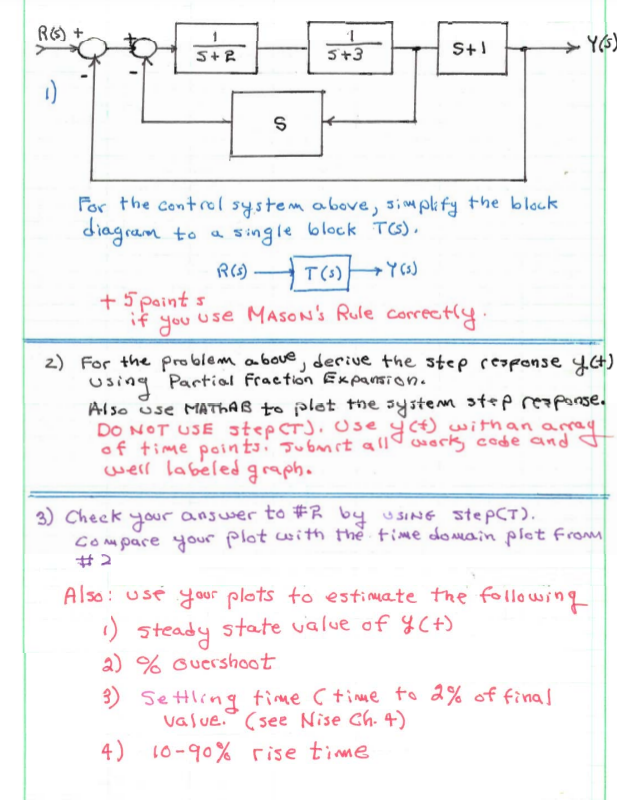 R(s) +
+
1
S+2
1
S+3
S+1
Y(s)
-
-
1)
S
For the control system above, simplify the block
diagram to a single block T(s).
R(s)
T(s)
Y(s)
+ 5 points
if you use MASON'S Rule correctly.
2) For the problem above, derive the step response y(t)
using Partial Fraction Expansion.
Also use MATHAB to plot the system step response.
DO NOT USE step(T). Use y(t) with an array
of time points. Submit all work, code and
well labeled graph.
3) Check your answer to #2 by USING step(T).
Compare your plot with the time domain plot from
#2
Also: use your plots to estimate the following
1) steady state value of y(t)
2) % Overshoot
3) Settling time (time to 2% of final
value. (see Nise Ch. 4)
4) 10-90% rise time